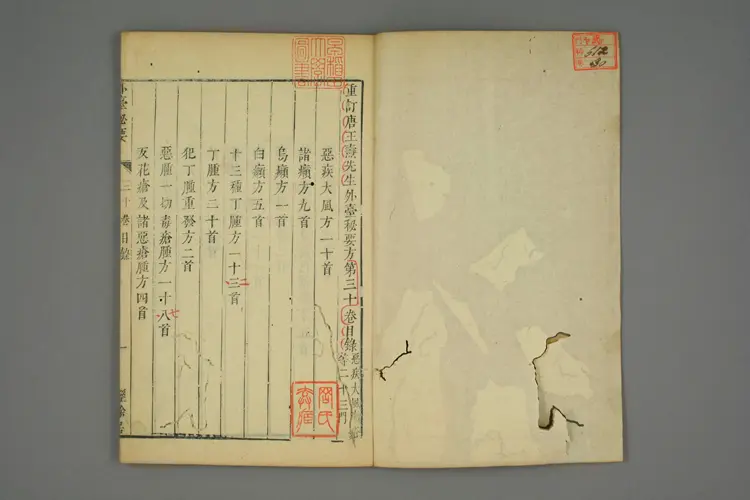 重訂唐王燾先生外臺秘要方第三十卷目錄
惡疾大風
二十三門
惡疾大風方一十首
諸癩方九首
烏癩方一首
白癩方五首
十三種丁腫方一十三首
二
丁腫方二十首
犯丁腫重發方二首
惡腫一切毒瘡腫方一十八首
七
反花瘡及諸惡瘡腫方四首
外臺秘要
三十卷目錄
一